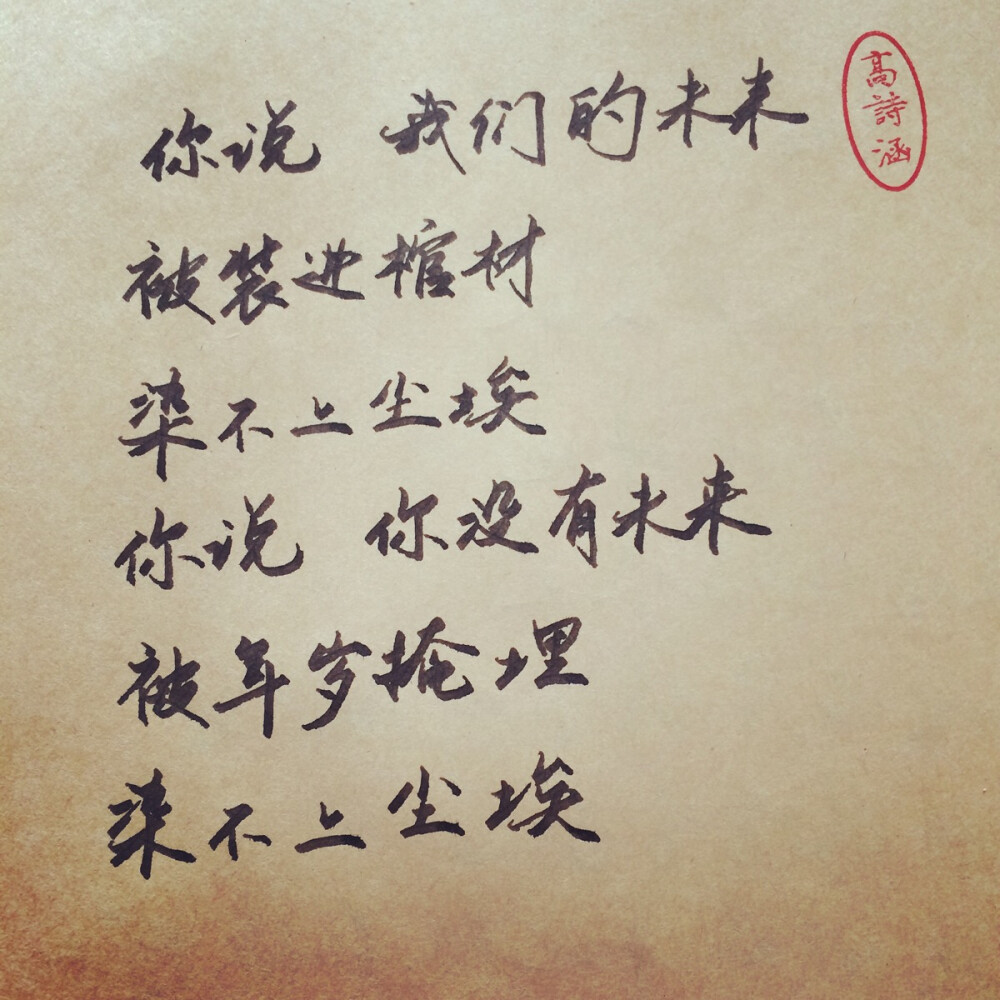 你说 我们的未来
被装进棺材
染不上尘埃
你说 你没有未来
被年岁掩埋
染不上尘埃
高詩涵